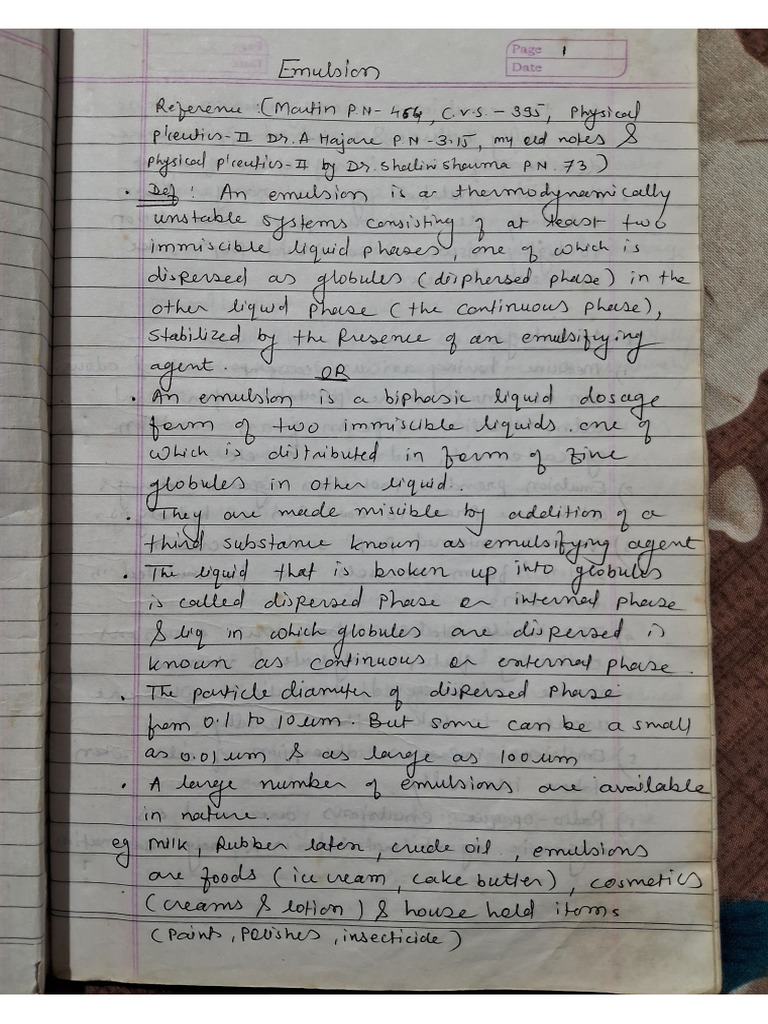 Page 1
Date
Emulsion
Reference :(Martin P.N- 464, C.V.S. - 395, Physical
p'ceutics-II Dr. A Hajare P.N -3.15, my old notes &
physical p'ceutics-II by Dr. Shalini Sharma P.N. 73)
• Def : An emulsion is a thermodynamically
unstable systems consisting of at least two
immiscible liquid phases, one of which is
dispersed as globules (disphersed phase) in the
other liquid phase (the continuous phase),
stabilized by the Presence of an emulsifying
agent.
OR
• An emulsion is a biphasic liquid dosage
form of two immiscible liquids. one of
which is distributed in form of fine
globules in other liquid.
• They are made miscible by addition of a
third substance known as emulsifying agent
• The liquid that is broken up into globules
is called dispersed Phase or internal phase
& liq in which globules are dispersed is
known as continuous or external phase.
• The particle diameter of dispersed Phase
from 0.1 to 10 um. But some can be a small
as 0.01 um & as large as 100 um
• A large number of emulsions are available
in nature.
eg Milk, Rubber latex, crude oil, emulsions
are foods (ice cream, cake butter), cosmetics
(creams & lotion) & house hold items
(Paints, Polishes, insecticide)